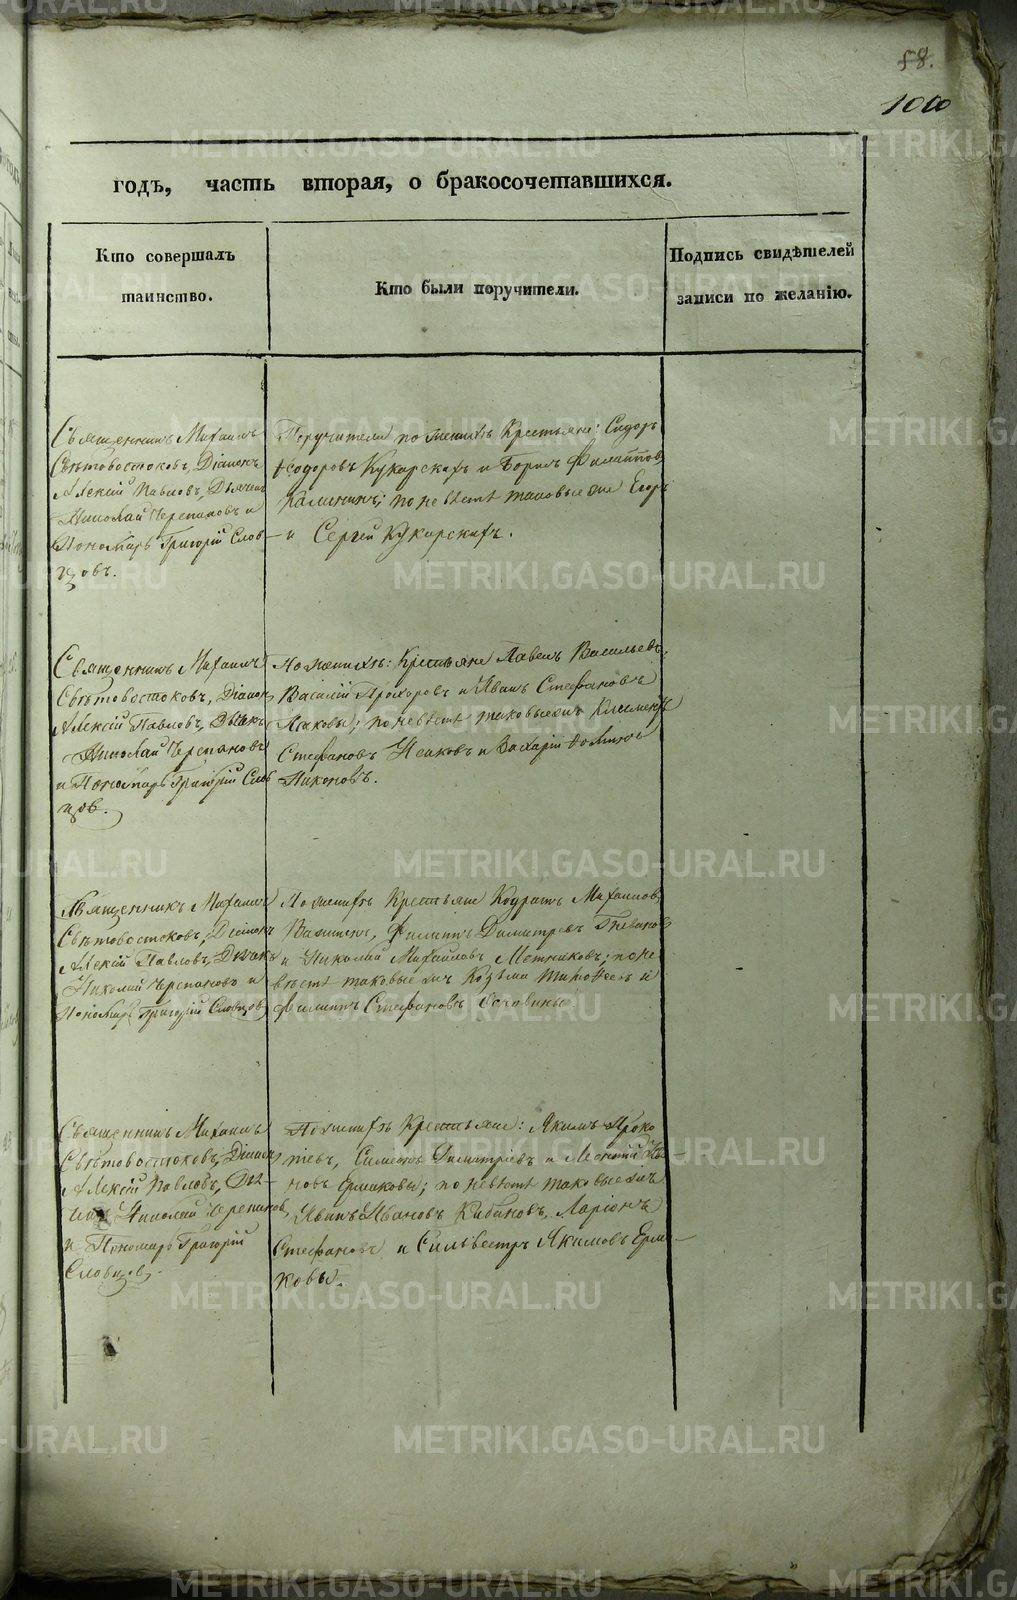 58.
100
годъ, часть вторая, о бракосочетавшихся.
Кто совершалъ
таинство.
Кто были поручители.
Подпись свидѣтелей
записи по желанію.
Священникъ Михаилъ
Свѣтовостоковъ, Діаконъ
Алексій Павловъ, Дьячекъ
Николай Черепановъ и
Пономарь Григорій Слов-
цовъ.
Поручители по женихѣ Крестьяне: Сидоръ
Ѳеодоровъ Кукарскихъ и Борисъ Филипповъ
Калининъ; по невѣстѣ таковые же Егоръ
и Сергей Кукарскихъ.
Священникъ Михаилъ
Свѣтовостоковъ, Діаконъ
Алексій Павловъ, Дьячекъ
Николай Черепановъ
и Пономарь Григорій Слов
цовъ.
По женихѣ: Крестьяне Павелъ Васильевъ,
Василій Прохоровъ и Иванъ Стефановъ
Исаковы; по невѣстѣ таковые же Климентъ
Стефановъ Исаковъ и Захарій
Никоновъ.
Священникъ Михаилъ
Свѣтовостоковъ, Діаконъ
Алексій Павловъ, Дьячекъ
Николай Черепановъ и
Пономарь Григорій Словцовъ
По женихѣ Крестьяне Кодратъ Михаиловъ
Филиппъ Димитріевъ
и Николай Михайловъ Мѣтниковъ; по не
вѣстѣ таковые же Козьма Тимоѳеевъ и
Филиппъ Стефановъ
Священникъ Михаилъ
Свѣтовостоковъ, Діаконъ
Алексій Павловъ, Дья-
Николай Черепановъ,
и Пономарь Григорій
Словцовъ.
По женихѣ Крестьяне: Якимъ Проко
пьевъ, Симеонъ Димитріевъ и Леонтій Ива-
новъ Ермаковы; по невѣстѣ таковые же
Иванъ Ивановъ Кабановъ, Ларіонъ
Стефановъ и Сильвестръ Якимовъ Ерма-
ковы.
METRIKI.GASO-URAL.RU